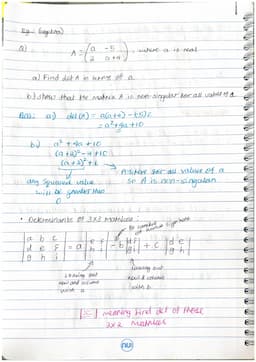 Eg:- (algebra)
Q) A = (a -5
2 a+4), where a is real
a) Find det A in terms of a.
b) Show that the matrix A is non-singular for all values of a
Ans: a) det(A) = a(a+4) - (-5)2
= a²+4a+10
b) a² + 4a + 10
(a+2)² - 4 + 10
(a+2)² + 6
any squared value
will be greater than
0
A > 0 for all values of a
so A is non-singular
• Determinants of 3x3 Matrices:
|a b c
d e f
g h i| = a |e f
h i| - b |d f
g i| + c |d e
g h|
Leaving out
row and column
with a
leaving out
row & column
with b
| | meaning find det of these
2x2 matrices